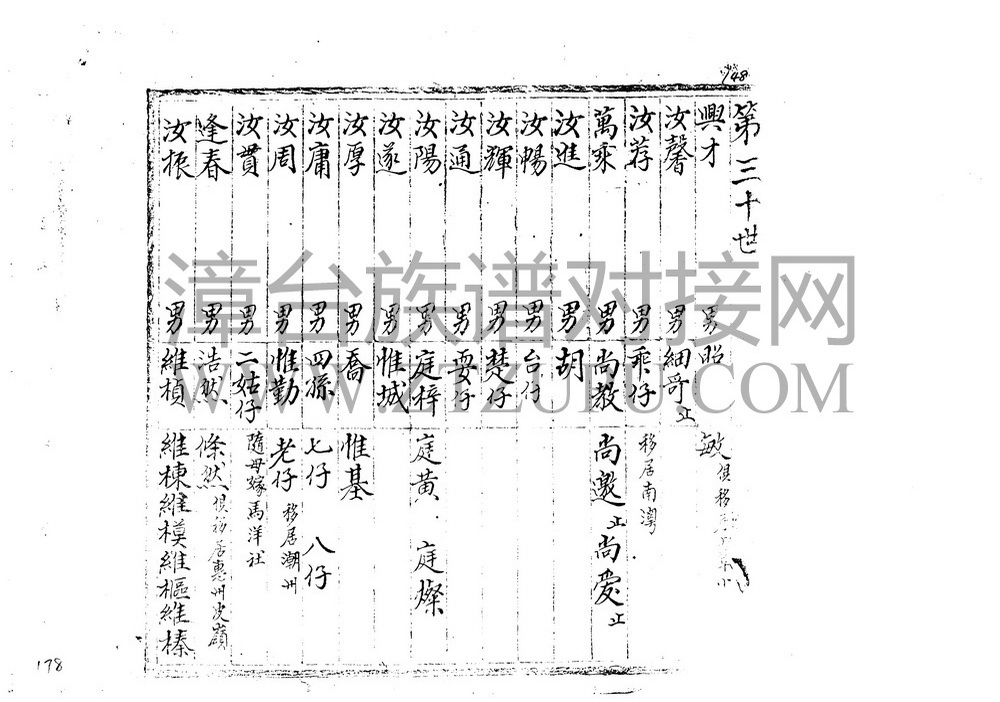 148
第三十世
興才 男 昭 敏 俱移
汝馨 男 細哥 止
汝荐 男 乘仔 移居南灣
萬乘 男 尚教 尚邀 止 尚爱 止
汝進 男 胡
汝暢 男 台仔
汝輝 男 楚仔
汝通 男 耍仔
汝陽 男 庭梓 庭黄 庭燦
汝遂 男 惟城
汝厚 男 喬 惟基
汝庸 男 四孫 七仔 八仔
汝周 男 惟勤 老仔 移居潮州
汝貫 男 二姑仔 隨母嫁馬洋社
逢春 男 浩然 倏然 俱移居惠州皮嶺
汝振 男 維楨 維棟維模維樞維榛
178
漳台族谱对接网
WWW.ZTZUPU.COM